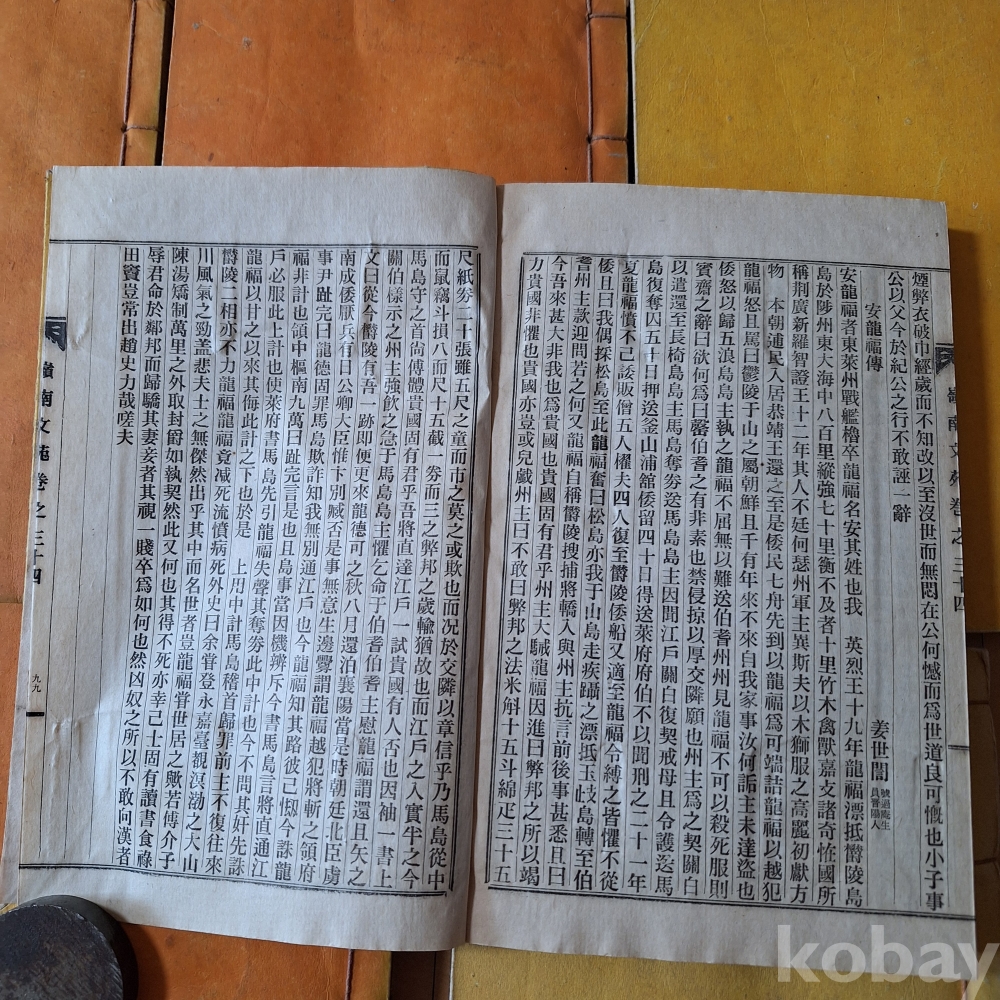 煙弊衣破巾經歲而不知改以至沒世而無悶在公何憾而爲世道良可慨也小子事
公以父今於紀公之行不敢誣一辭
安龍福傳
姜世誾
號過庵生
員晉陽人
安龍福者東萊州戰艦櫓卒龍福名安其姓也我 英烈王十九年龍福漂抵欝陵島
島於陟州東大海中八百里縱強七十里衡不及者十里竹木禽獸嘉支諸奇恠國所
稱荆廣新羅智證王十二年其人不廷何瑟州軍主異斯夫以木獅服之高麗初獻方
物 本朝通民入居恭靖王還之至是倭民七舟先到以龍福爲可端詰龍福以越犯
龍福怒且罵曰鬱陵于山之屬朝鮮且千有年來不來自我家事汝何詬主未達盜也
倭怒以歸五浪島島主執之龍福不屈無以難送伯耆州州見龍福不可以殺死服則
賓齋之辭曰欲何爲曰罄伯耆之有非素也禁侵掠以厚交隣願也州州主爲之契關白
以遣還至長椅島島主奪券送馬島島主因聞江戶關白復契戒母且令護送馬
島復奪囚五十日押送釜山浦舘倭留四十日得送萊府府伯不以聞刑之二十一年
夏龍福憤不已談販僧五人櫂夫四人復至欝陵倭船又適至龍福令縛之皆懼不從
倭且曰我偶探松島至此龍福奮曰松島亦我于山島走疾躡之漂抵玉岐島轉至伯
耆州主款迎問若之何又龍福自稱欝陵搜捕將轎入與州主抗言前後事甚悉且曰
今吾來甚大非我也爲貴國貴國固有君乎州主大駴龍福因進曰弊邦之所以竭
力貴國非懼也貴國何與兒戲州主曰不敢曰弊邦之法米斛十五斗綿疋三十五
尺紙劵二十張雖五尺之童而市之莫之或欺也而况於交隣以章信乎乃馬島從中
而鼠竊斗損八而尺十五截一券而三之弊邦之歲輸猶故也而江戶之入實半之今
馬島守之首尙傅體貴國固有君乎吾將直達江戶一試貴國有人否也因袖一書上
關伯㨾示之州主強飮之急于馬島島主懼乞命于伯耆伯耆主慰龍福謂還且矢之
文曰從今欝陵有吾一跡卽便更來龍德可之秋八月還泊襄陽當是時朝廷北臣虜
南成倭厭兵有日公卿大臣惟卞別贓否是事無意生邊釁謂龍福越犯將斬之領府
事尹趾完曰龍德固罪馬島欺詐知我無別通江戶也今龍福知其路彼已惘今誅龍
福非計也領中樞南九萬曰趾完言是也且島事當因機辨斥今書馬島言將直通江
戶必服此上計也使萊府書馬島先引龍福失聲其奪劵此中計也今不問其奸先誅
龍福以甘之以來其侮此計之下也於是 上用中計馬島稽首歸罪前主不復往來
欝陵二相亦不力龍福龍福竟减死流憤病死外史曰余甞登永嘉臺覩溟渤之大山
川風氣之勁盖悲夫士之無傑然出乎其中而名世者豈龍福甞世居之歟若傅介子
陳湯矯制萬里之外取封爵如執契然此又何也其得不死亦幸已士固有讀書食祿
辱君命於鄰邦而歸驕其妻妾者其視一賤卒爲如何也然凶奴之所以不敢向漢者
田竇豈常出趙㞮力哉嗟夫
嶺南文苑卷之三十四
嶺南文苑卷之三十四
九九
kobay